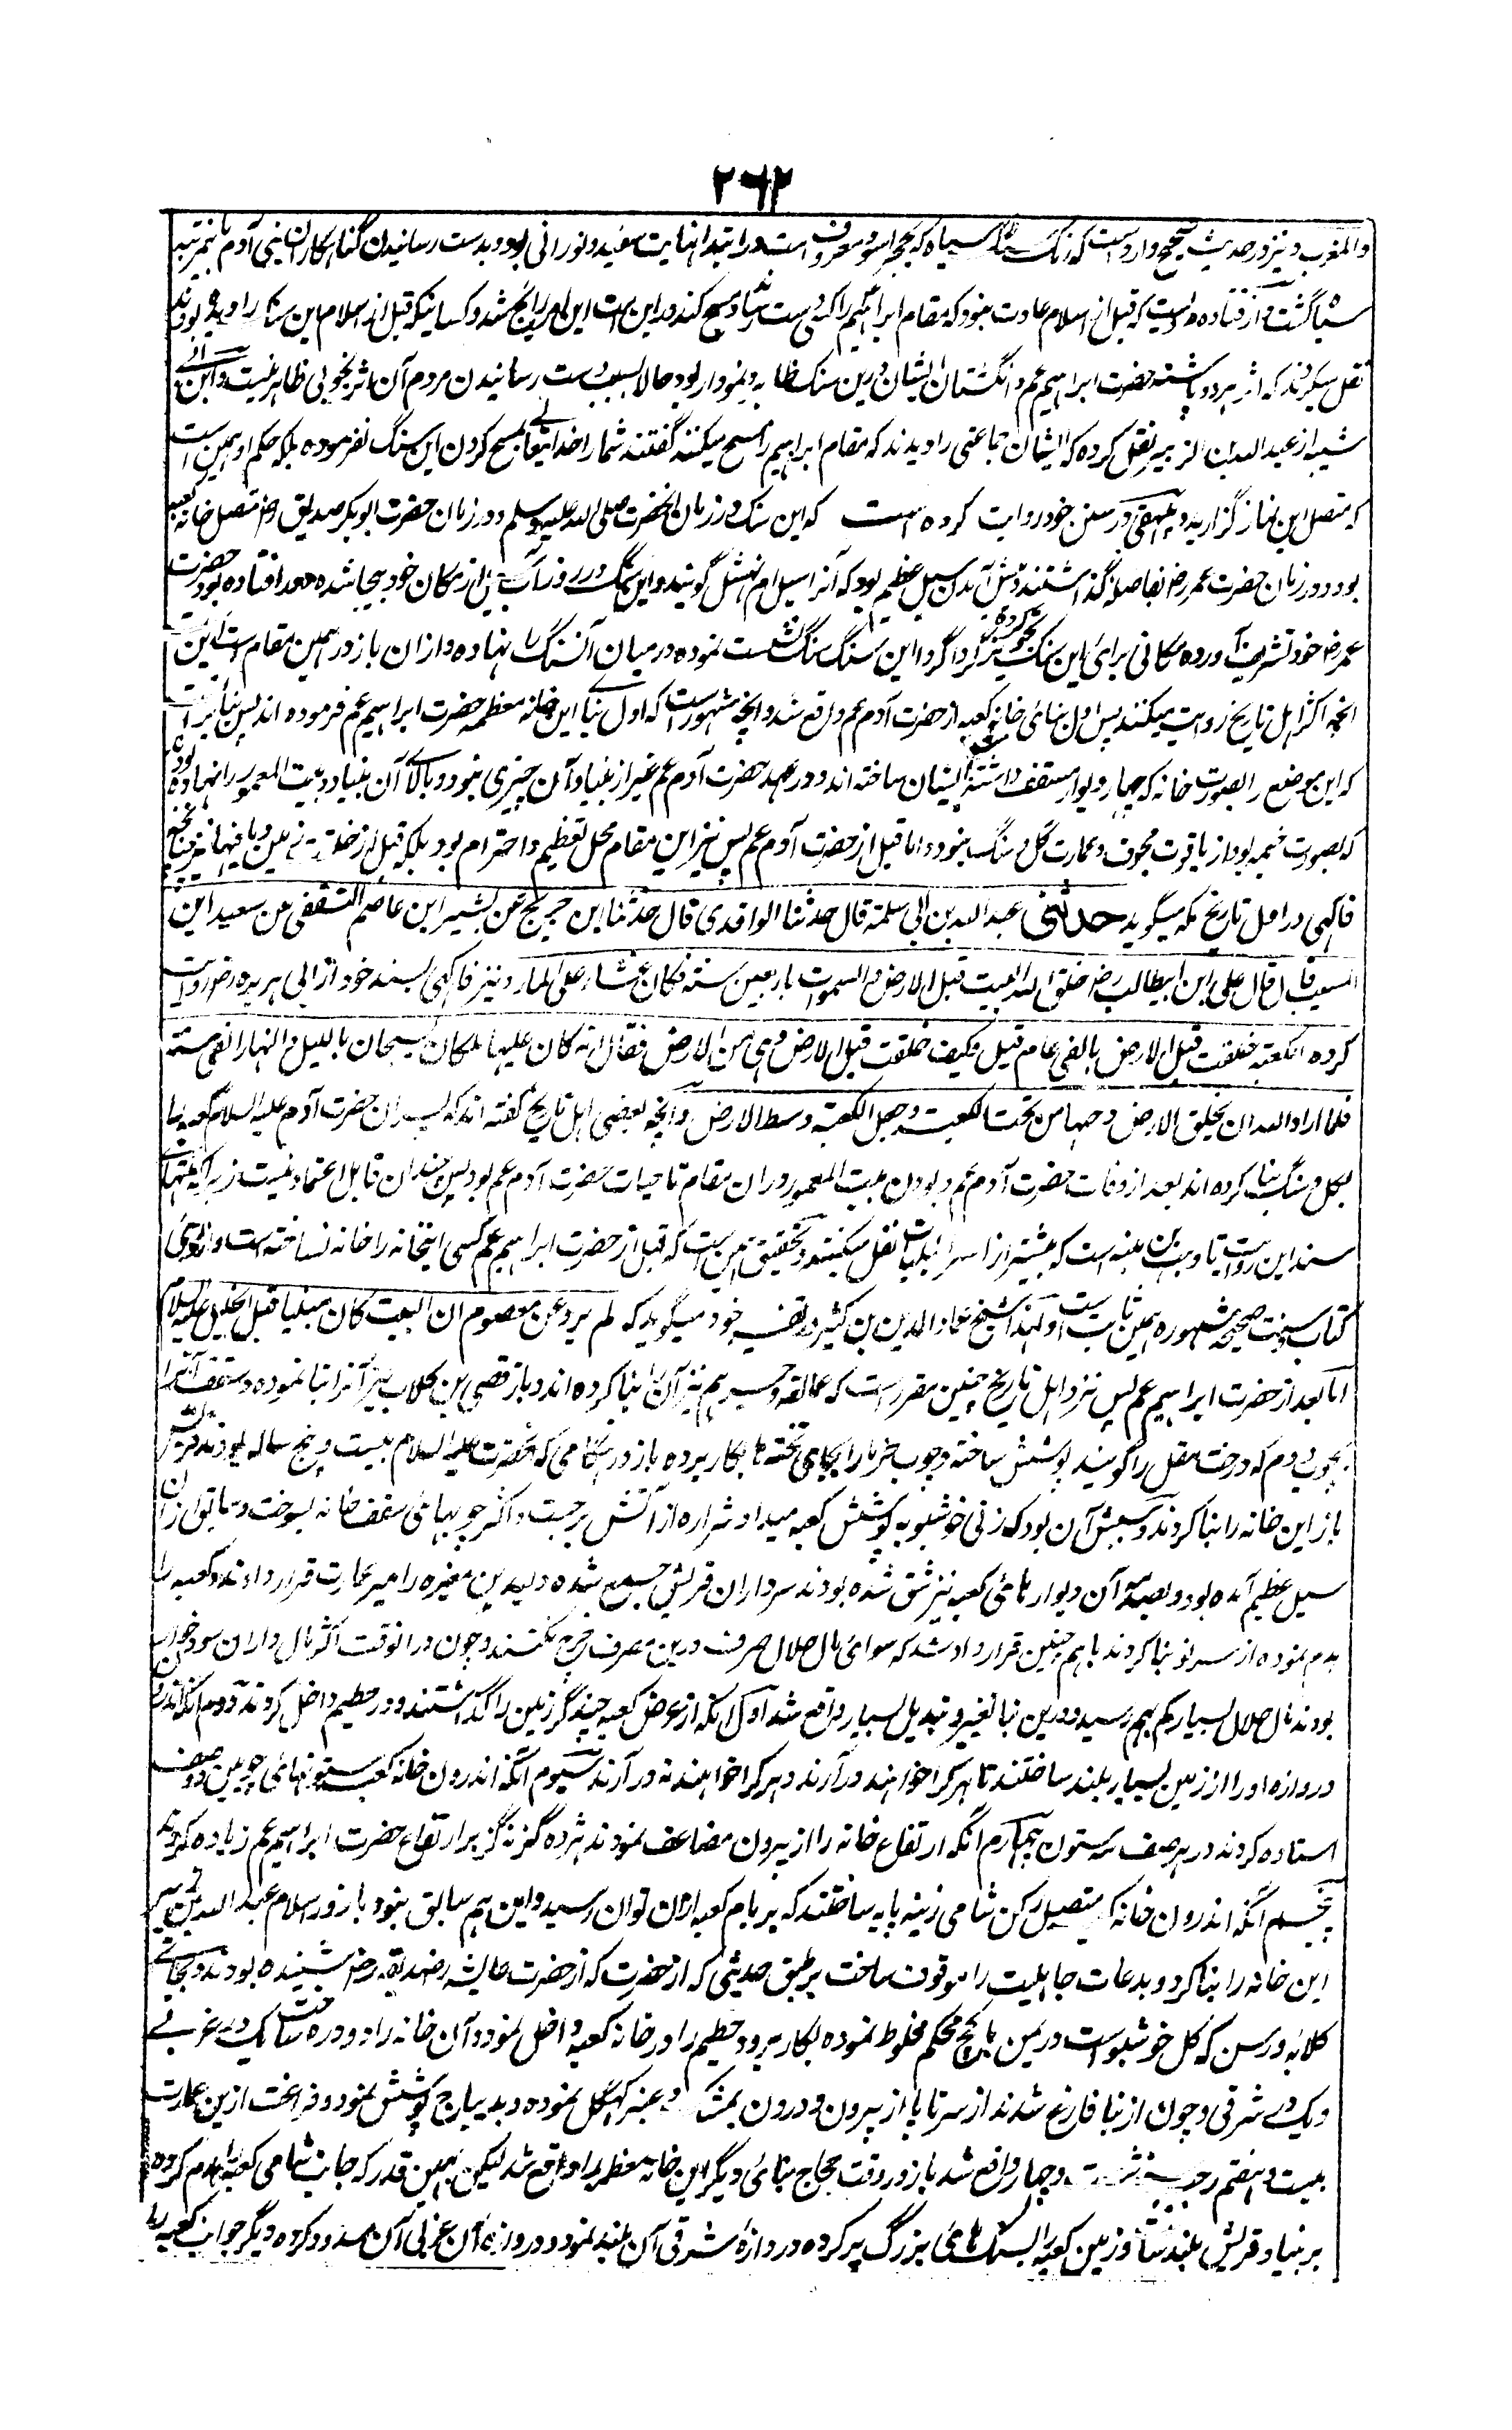 ۲۶۲
والمغرب و نیز در حدیث صحیح وارد است که سنگ سیاه که بحجر اسود معروف است در ابتدا نهایت سفید و نورانی بود و بدست رسانیدن گناهگاران بنی آدم باینمرتبه
سیاه گشت و ازقتاده مرویست که قبل از اسلام عادت نبود که مقام ابراهیم را کسی دست رساند و مسح کند در این امت این امر رایج شد و کسانیکه قبل از اسلام این سنگ را دیده بودند
نقل میکردند که اثر هر دو پاشنه حضرت ابراهیم عم و انگشتان ایشان درین سنگ ظاهر و نمودار بود حالا بسبب دست رسانیدن مردم آن اثر بخوبی ظاهر نیست و ابن ابی
شیبه از عبد الله بن الزبیر نقل کرده که ایشان جماعتی را دیدند که مقام ابراهیم را مسح میکنند گفتند شما را خدایتعالی بمسح کردن این سنگ نفرموده بلکه حکم او همین است
که متصل این نماز گزارید و بیهقی در سنن خود روایت کرده است که این سنگ در زمان آنحضرت صلی الله علیه وسلم و در زمان حضرت ابوبکر صدیق رضـ متصل خانه کعبه
بود و در زمان حضرت عمر رضـ بفاصله گذاشتند وجهش آمدن سیل عظیم بود که آنرا سیل ام نهشل گویند و این سنگ در زور آب ازین مکان خود بیجا شده دور افتاده بود حضرت
عمر رضـ خود تشریف آورده مکانی برای این سنگ تجویز کرده گرداگرد این سنگ سنگ نشست نموده درمیان آن سنگ را نهاده و ازان باز در همین مقام است اینست
انچه اکثر اهل تاریخ روایت میکنند پس اول بنای خانه کعبه از حضرت آدم عم واقع شد و انچه مشهور است که اول بنای این خانه معظمه حضرت ابراهیم عم فرموده اند پس بنا بر آنست
که این موضع را بصورت خانه که چهار دیوار مسقف داشته باشد ایشان ساخته اند و در عهد حضرت آدم عم غیر از بنیاد آن چیزی نبود و بالای آن بنیاد بیت المعمور را نهاده بودند
که بصورت خیمه بود از یاقوت مجوف و عمارت گل و سنگ نبود و اما قبل از حضرت آدم عم پس نیز این مقام محل تعظیم و احترام بود بلکه قبل از خلقت زمین و مافیها نیز چنانچه
فاکهی در اول تاریخ مکه میگوید حدثنی عبد الله بن ابی سلمة قال حدثنا الواقدی قال حدثنا ابن جریج عن بشیر ابن عاصم الثقفی عن سعید ابن
المسیب قال قال علی ابن ابیطالب رضـ خلق الله البیت قبل الارض و السموات باربعین سنة فکان غثاء علی الماء و نیز فاکهی بسند خود از ابی هریره رضـ روایت
کرده الکعبة خلقت قبل الارض بالفی عام قیل وکیف خلقت قبل الارض وهی من الارض فقال انه کان علیها ملکان یسبحان باللیل والنهار الفی سنة
فلما اراد الله ان یخلق الارض دحها من تحت الکعبة وجعل الکعبة وسط الارض و انچه بعضی اهل تاریخ گفته اند که پسران حضرت آدم علیه السلام کعبه را
بگل و سنگ بنا کرده اند بعد از وفات حضرت آدم عم و بودن بیت المعمور دران مقام تا حیات حضرت آدم عم بود پس چندان قابل اعتماد نیست زیراکه منتهای
سند این روایت تا وهب بن منبه است که بیشتر از اسرائیلیات نقل میکنند و تحقیق همین است که قبل از حضرت ابراهیم عم کسی اینخانه را خانه نساخته است و از روی
کتاب و سنت صحیحه مشهوره همین ثابت است و لهذا شیخ عماد الدین بن کثیر در تفسیر خود میگوید که لم یرد عن معصوم ان البیت کان مبنیا قبل الخلیل علیه السلام
اما بعد از حضرت ابراهیم عم پس نزد اهل تاریخ چنین مقرر است که عمالقه و جرهم نیز آن را بنا کرده اند و باز قصی بن کلاب نیز آنرا بنا نموده و سقف آنرا
بچوب دوم که درخت مقل را گویند پوشش ساخته و چوب خرما را بجای تخته ها بکار برده باز در هنگامی که آنحضرت علیه السلام بیست و پنج ساله بودند قریش
باز این خانه را بنا کردند و سببش آن بود که زنی خوشبو به پوشش کعبه میداد شراره از آتش برجست و اکثر چوبهای سقف خانه بسوخت و سابق ازان
سیل عظیم آمده بود و بصدمه آن دیوارهائی کعبه نیز شق شده بودند سرداران قریش جمع شده ولید بن مغیره را میر عمارت قرار دادند و کعبه را
هدم نموده از سر نو بنا کردند باهم چنین قرار داد شد که سوای مال حلال صرف درین مصرف خرج نکنند و چون درانوقت اکثر مال داران سودخوار
بودند مال حلال بسیار کم بهم رسید و درین بنا تغیر و تبدیل بسیار واقع شد اول آنکه از عرض کعبه چند گز زمین را گذاشتند و در حطیم داخل کردند دوم آنکه
دروازه او را از زمین بسیار بلند ساختند تا هر کرا خواهند درآرند و هر کرا خواهند نه درآرند سیوم آنکه اندرون خانه کعبه ستونهای چوبین دو صف
استاده کردند در هر صف سه ستون چهارم آنکه ارتفاع خانه را از بیرون مضاعف نمودند هژده گز نه گز بر ارتفاع حضرت ابراهیم عم زیاده کردند
پنجم آنکه اندرون خانه کعبه متصل رکن شامی زینه پایه ساختند که بر بام کعبه ازان توان رسید و این هم سابق نبود باز در اسلام عبد الله بن زبیر
این خانه را بنا کرد و بدعات جاهلیت را موقوف ساخت بر طبق حدیثی که از حضرت عایشه صدیقه رضـ شنیده بودند و بجای
کلابه ورس که گل خوشبو است در یمن با گچ محکم مخلوط نموده بکار برد و حطیم را در خانه کعبه داخل نمود و آن خانه را دو دره ساخت یک در غربی
و یک در شرقی و چون از بنا فارغ شدند از سر تا پا از بیرون و درون بمشک و عنبر کهگل نموده و بدیباج پوشش نمود و فراغت ازین عمارت
بیست و هفتم رجب سنه شصت و چهار واقع شد باز در وقت حجاج بنای دیگر این خانه معظم را واقع شد لیکن همین قدر که جانب شامی کعبه را هدم کرده
بر بنیاد قریش بلند ساخت و زمین کعبه را بسنگ های بزرگ پر کرده دروازه شرقی آن بلند نمود و دروازه غربی آن مسدود کرده دیگر جوانب کعبه را